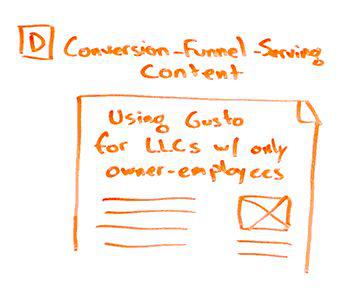 D Conversion-Funnel-Serving
Content
Using Gusto
for LLCs w/ only
owner-employees